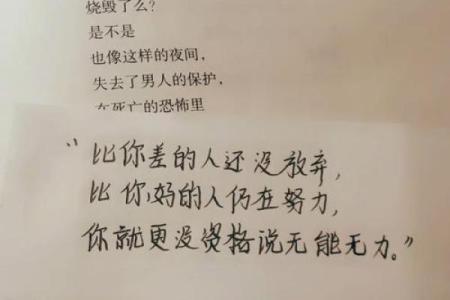 烧毁了么？
是不是
也像这样的夜间，
失去了男人的保护，
在死亡的恐怖里
“比你差的人还没放弃，
比你好的人仍在努力，
你就更没资格说无能无力。”